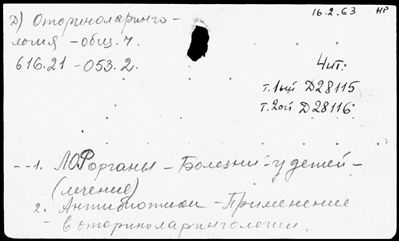 16.2.63 НР
Д) Оториноларинго-
логия - общ. ч.
616.21 - 053.2.
Чит.
т. 1ый Д28115
т. 2ой Д28116
1. ЛОРорганы - Болезни - у детей -
(лечение)
2. Антибиотики - Применение
- в оториноларингологии.